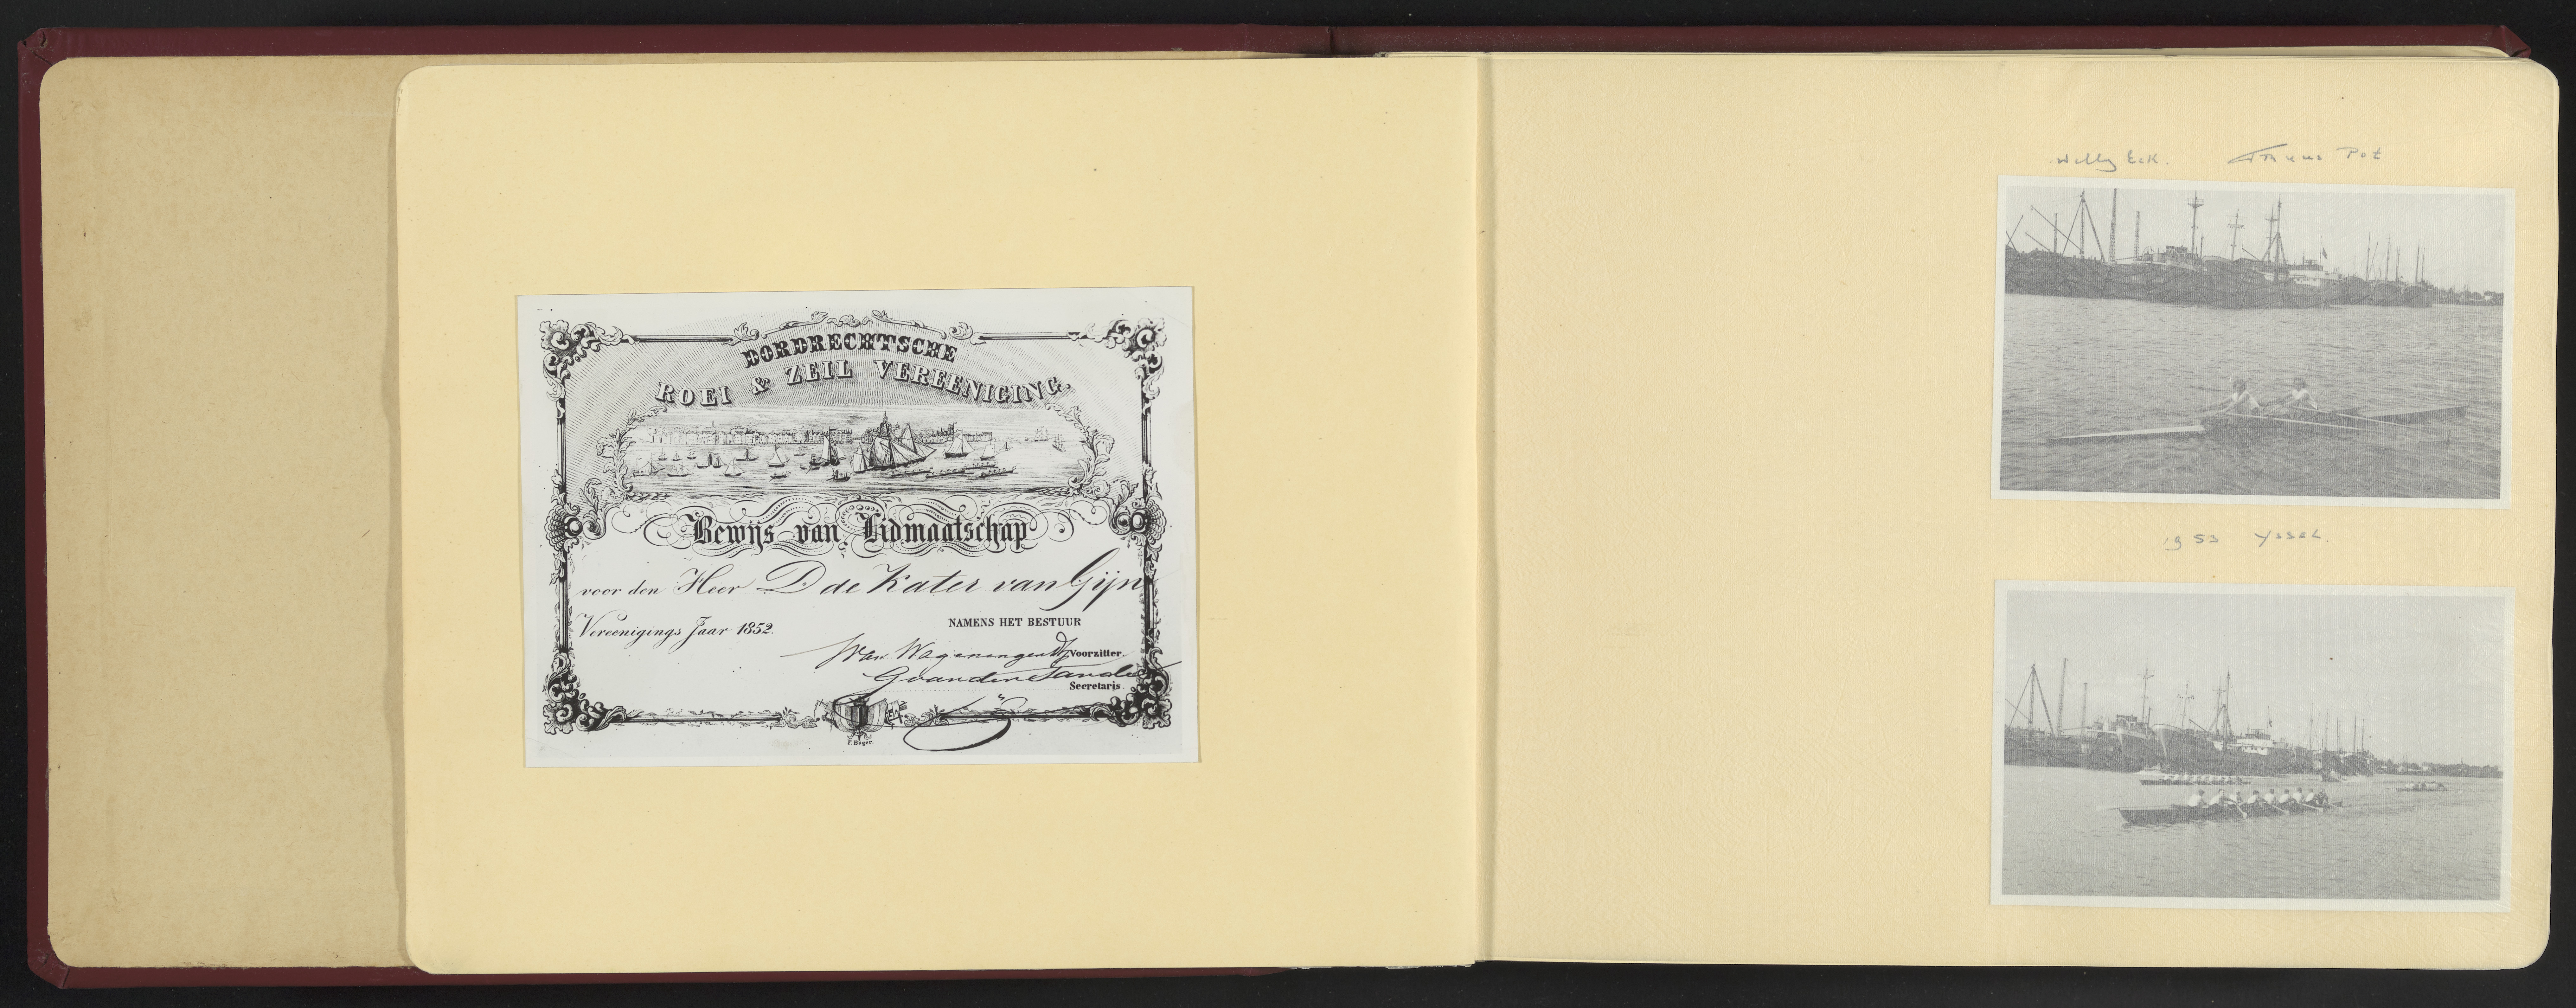 DORDRECHTSCHE
ROEI & ZEIL VEREENIGING.
Bewijs van Lidmaatschap
voor den Heer D de Kater van Gijn
Vereenigings Jaar 1852.
NAMENS HET BESTUUR
van Wageningen Voorzitter
Secretaris
Willy Eck. Pot
1953 Yssel.